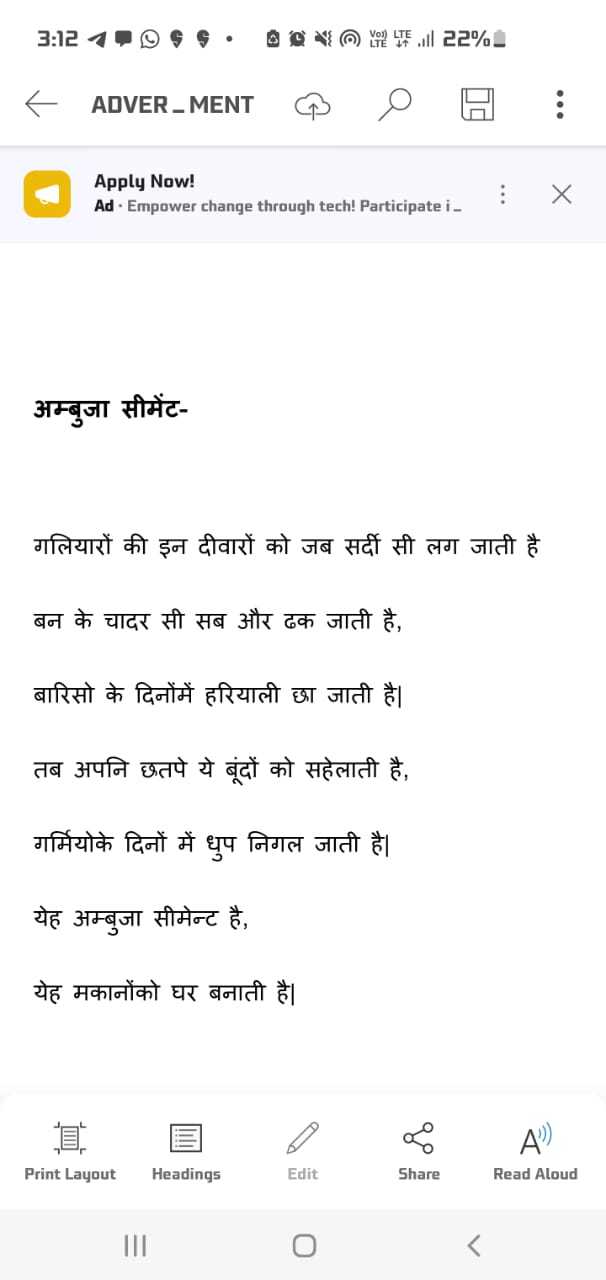 3:12 22%
ADVER_MENT
Apply Now!
Ad · Empower change through tech! Participate i_
अम्बुजा सीमेंट-
गलियारों की इन दीवारों को जब सर्दी सी लग जाती है
बन के चादर सी सब और ढक जाती है,
बारिसो के दिनोंमें हरियाली छा जाती है|
तब अपनि छतपे ये बूंदों को सहेलाती है,
गर्मियोके दिनों में धुप निगल जाती है|
येह अम्बुजा सीमेन्ट है,
येह मकानोंको घर बनाती है|
Print Layout Headings Edit Share Read Aloud